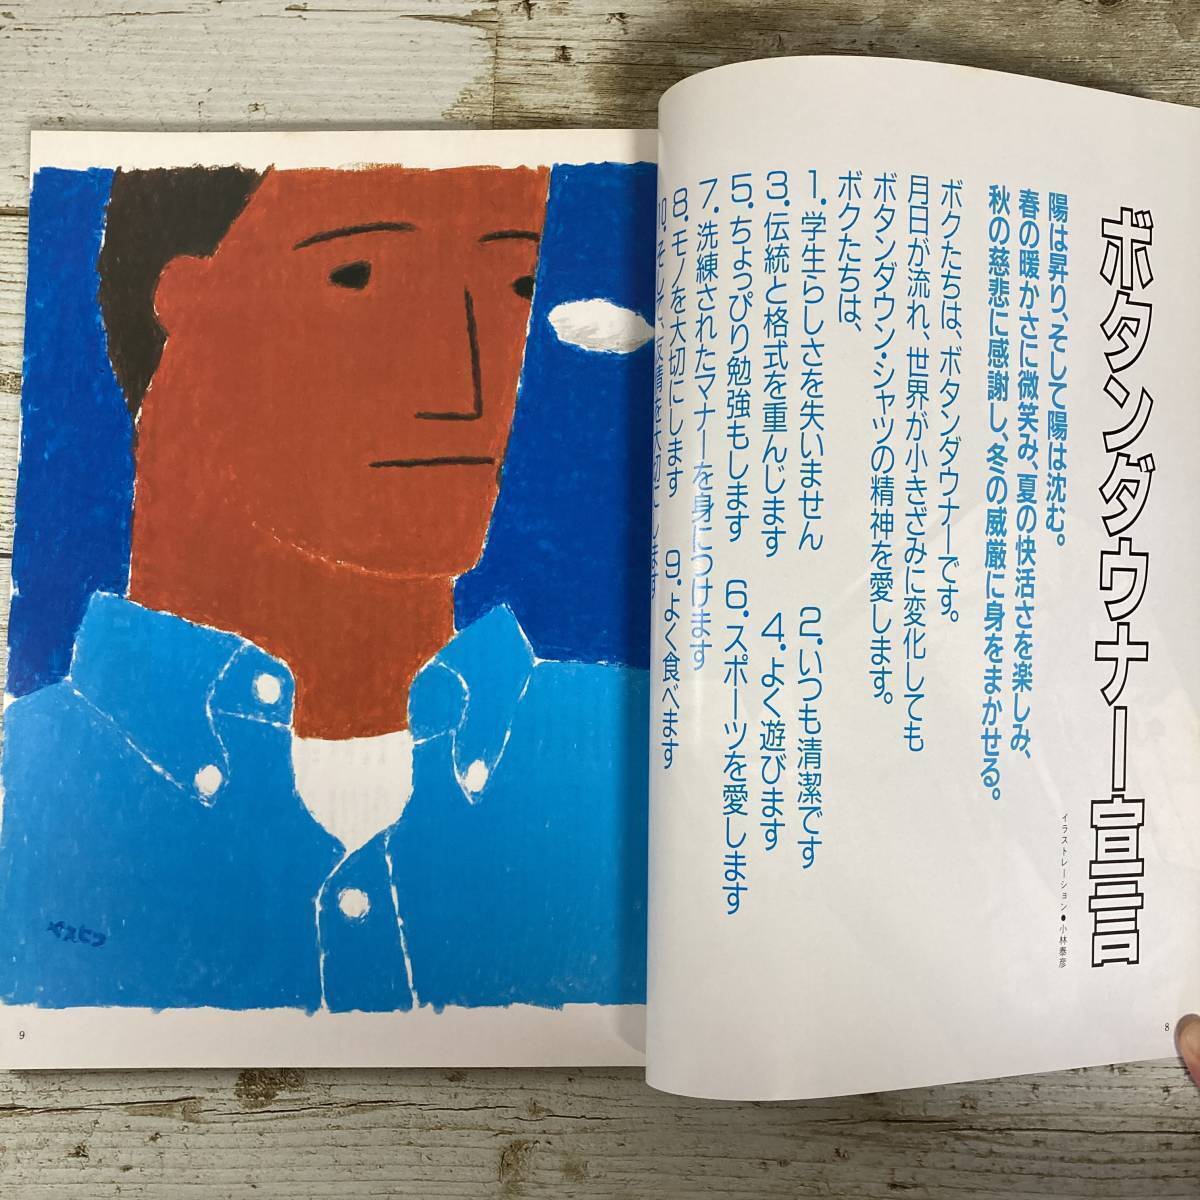 ボタンダウナー宣言
イラストレーション●小林泰彦
陽は昇り、そして陽は沈む。
春の暖かさに微笑み、夏の快活さを楽しみ、
秋の慈悲に感謝し、冬の威厳に身をまかせる。
ボクたちは、ボタンダウナーです。
月日が流れ、世界が小きざみに変化しても
ボタンダウン・シャツの精神を愛します。
ボクたちは、
1. 学生らしさを失いません 2. いつも清潔です
3. 伝統と格式を重んじます 4. よく遊びます
5. ちょっぴり勉強もします 6. スポーツを愛します
7. 洗練されたマナーを身につけます
8. モノを大切にします 9. よく食べます
10. そして、友情を大切にします
8
ヤスヒコ
9